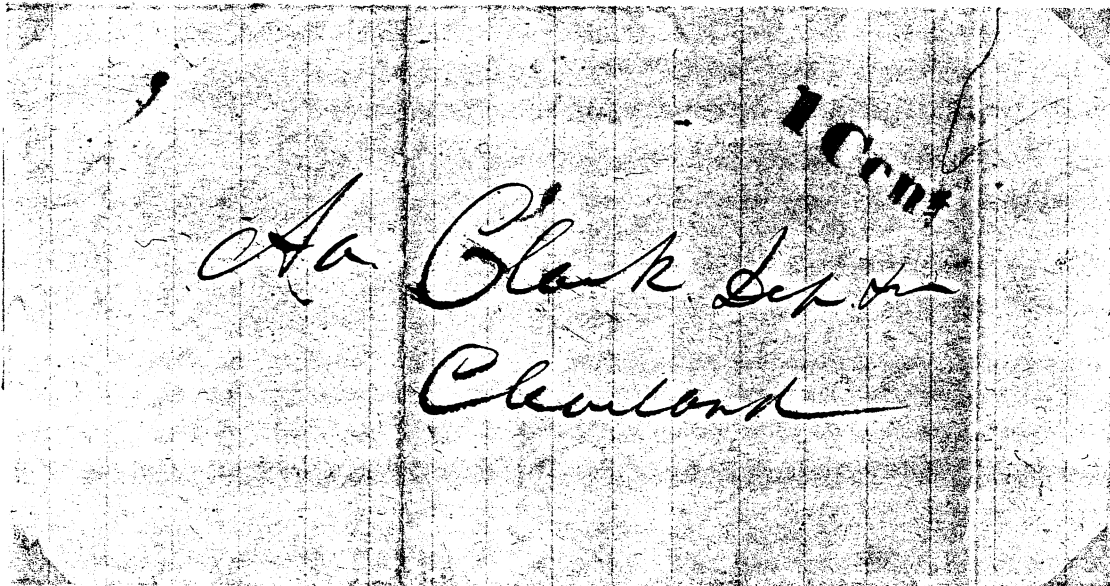 1 Cent
Aa Clark Dep.
Cleavland